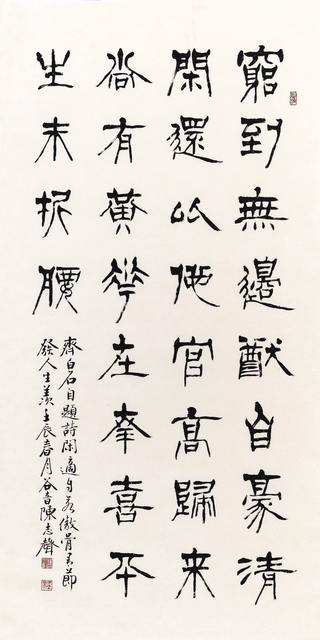 窮到無邊猷自豪清
閑還以他官高歸来
尚有黃華在幸喜平
生未折腰
齊白石自題詩閑適自若傲骨節
發人生羨壬辰春月谷音陳志聲